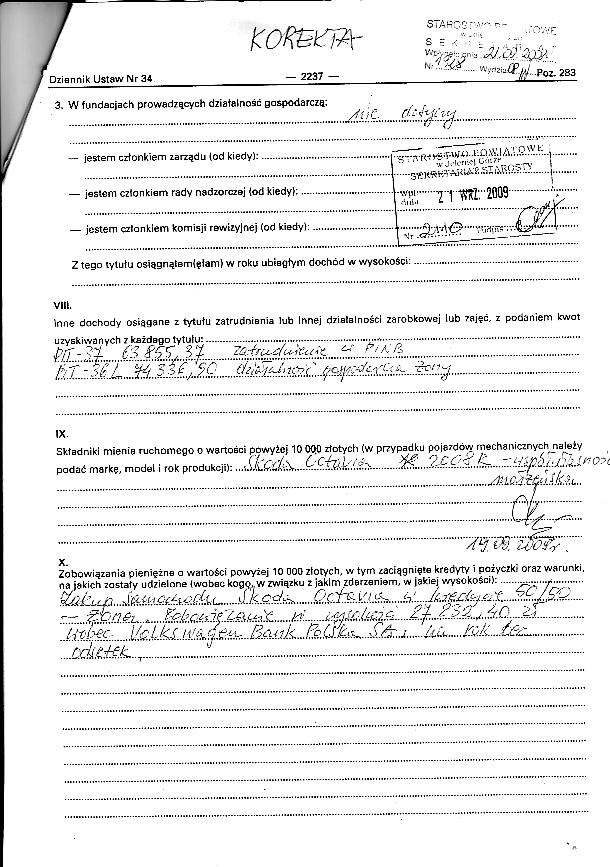 KOREKTA
STAROSTWO POWIATOWE
Dziennik Ustaw Nr 34
— 2237 —
Poz. 283
3. W fundacjach prowadzących działalność gospodarczą:
nie dotyczy
— jestem członkiem zarządu (od kiedy):
STAROSTWO POWIATOWE
w Jeleniej Górze
SEKRETARIAT STAROSTY
— jestem członkiem rady nadzorczej (od kiedy):
21 WRZ. 2009
— jestem członkiem komisji rewizyjnej (od kiedy):
Nr 2110 Podpis
Z tego tytułu osiągnąłem(ęłam) w roku ubiegłym dochód w wysokości:
VIII.
Inne dochody osiągane z tytułu zatrudnienia lub innej działalności zarobkowej lub zajęć, z podaniem kwot
uzyskiwanych z każdego tytułu:
PIT-37 63 855,37 zatrudnienie w PINB
PIT-36L 44 336,90 działalność gospodarcza żony
IX.
Składniki mienia ruchomego o wartości powyżej 10 000 złotych (w przypadku pojazdów mechanicznych należy
podać markę, model i rok produkcji): Skoda Octavia 2008 R - współwłasność
małżeńska
19.09.2009r.
X.
Zobowiązania pieniężne o wartości powyżej 10 000 złotych, w tym zaciągnięte kredyty i pożyczki oraz warunki,
na jakich zostały udzielone (wobec kogo, w związku z jakim zdarzeniem, w jakiej wysokości):
Zakup samochodu Skoda Octavia w kredycie 50/50
Zobowiązanie w wysokości 27 832,40 zł
wobec Volkswagen Bank Polska SA, na rok bez
odsetek